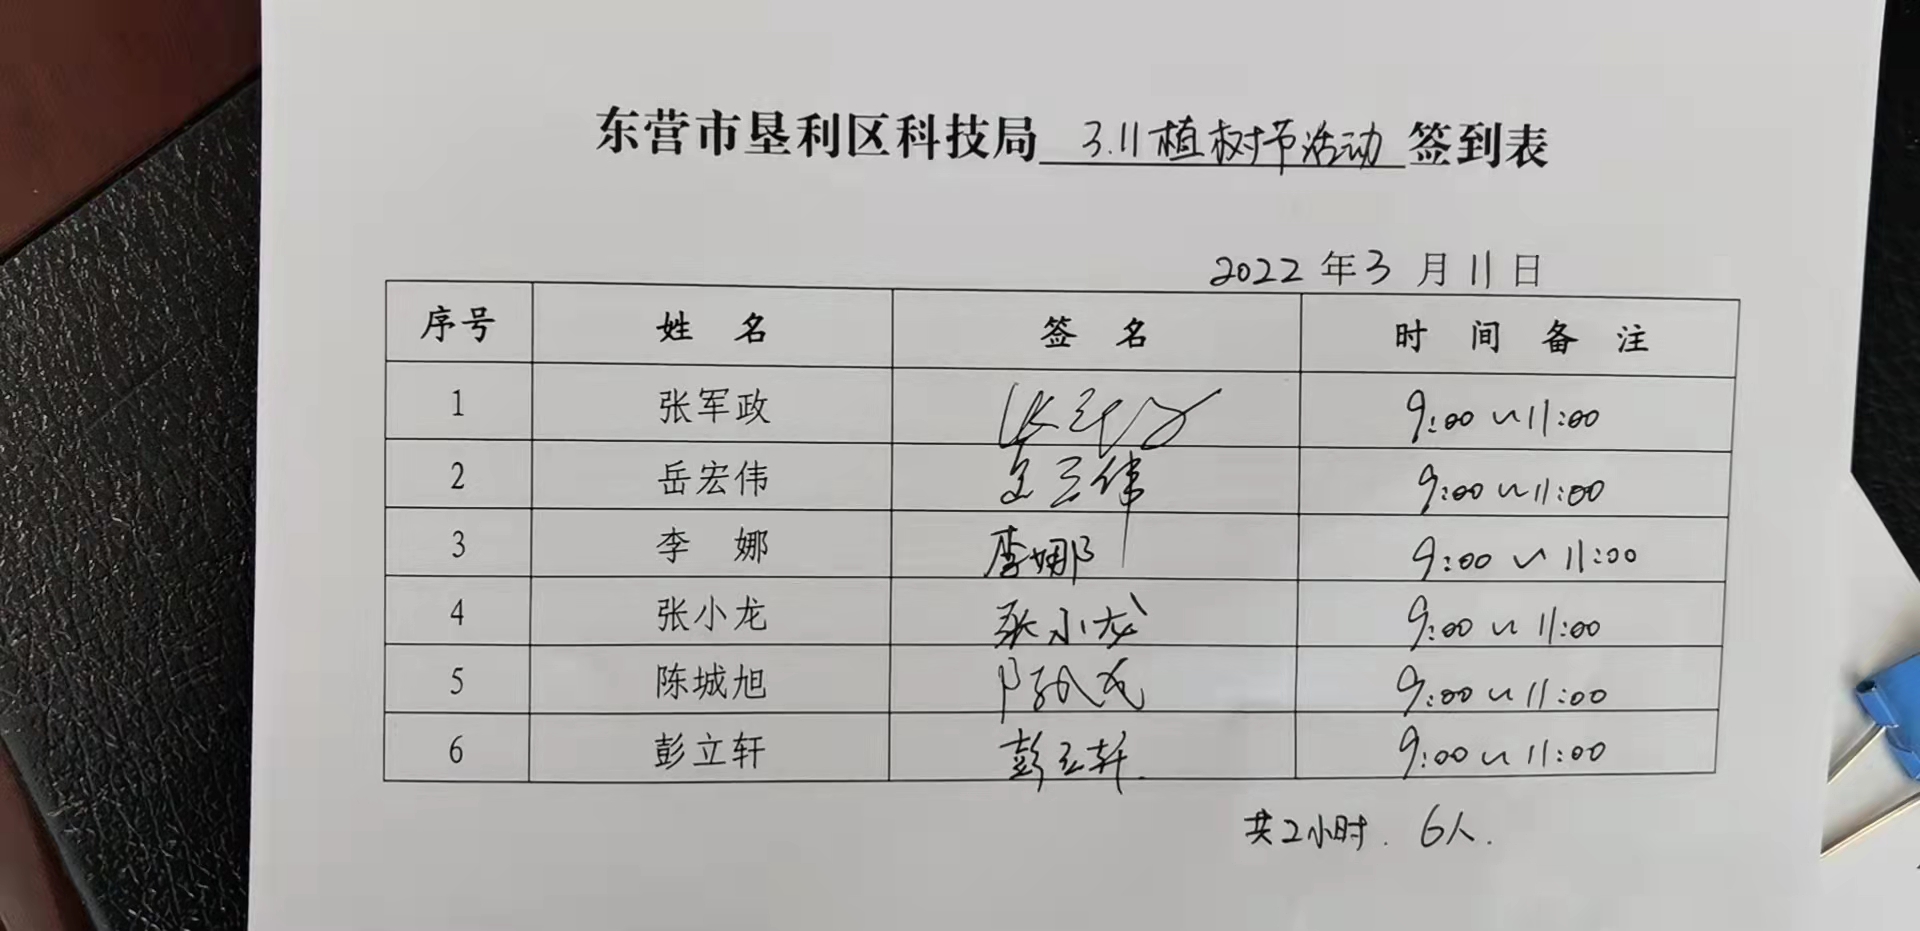 东营市垦利区科技局 3.11植树节活动 签到表
2022 年 3 月 11 日
序号 姓 名 签 名 时 间 备 注
1 张军政 9:00~11:00
2 岳宏伟 岳宏伟 9:00~11:00
3 李 娜 李娜 9:00~11:00
4 张小龙 张小龙 9:00~11:00
5 陈城旭 9:00~11:00
6 彭立轩 彭立轩 9:00~11:00
共2小时. 6人.